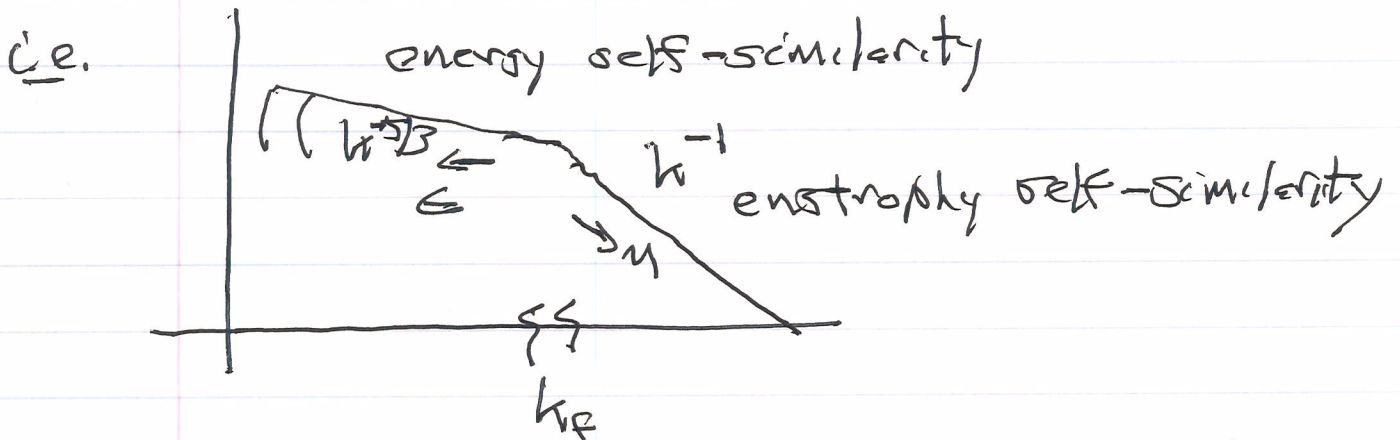 i.e.
energy self-similarity
k^-5/3
←
ε
k^-1
enstrophy self-similarity
↘ η
k_f